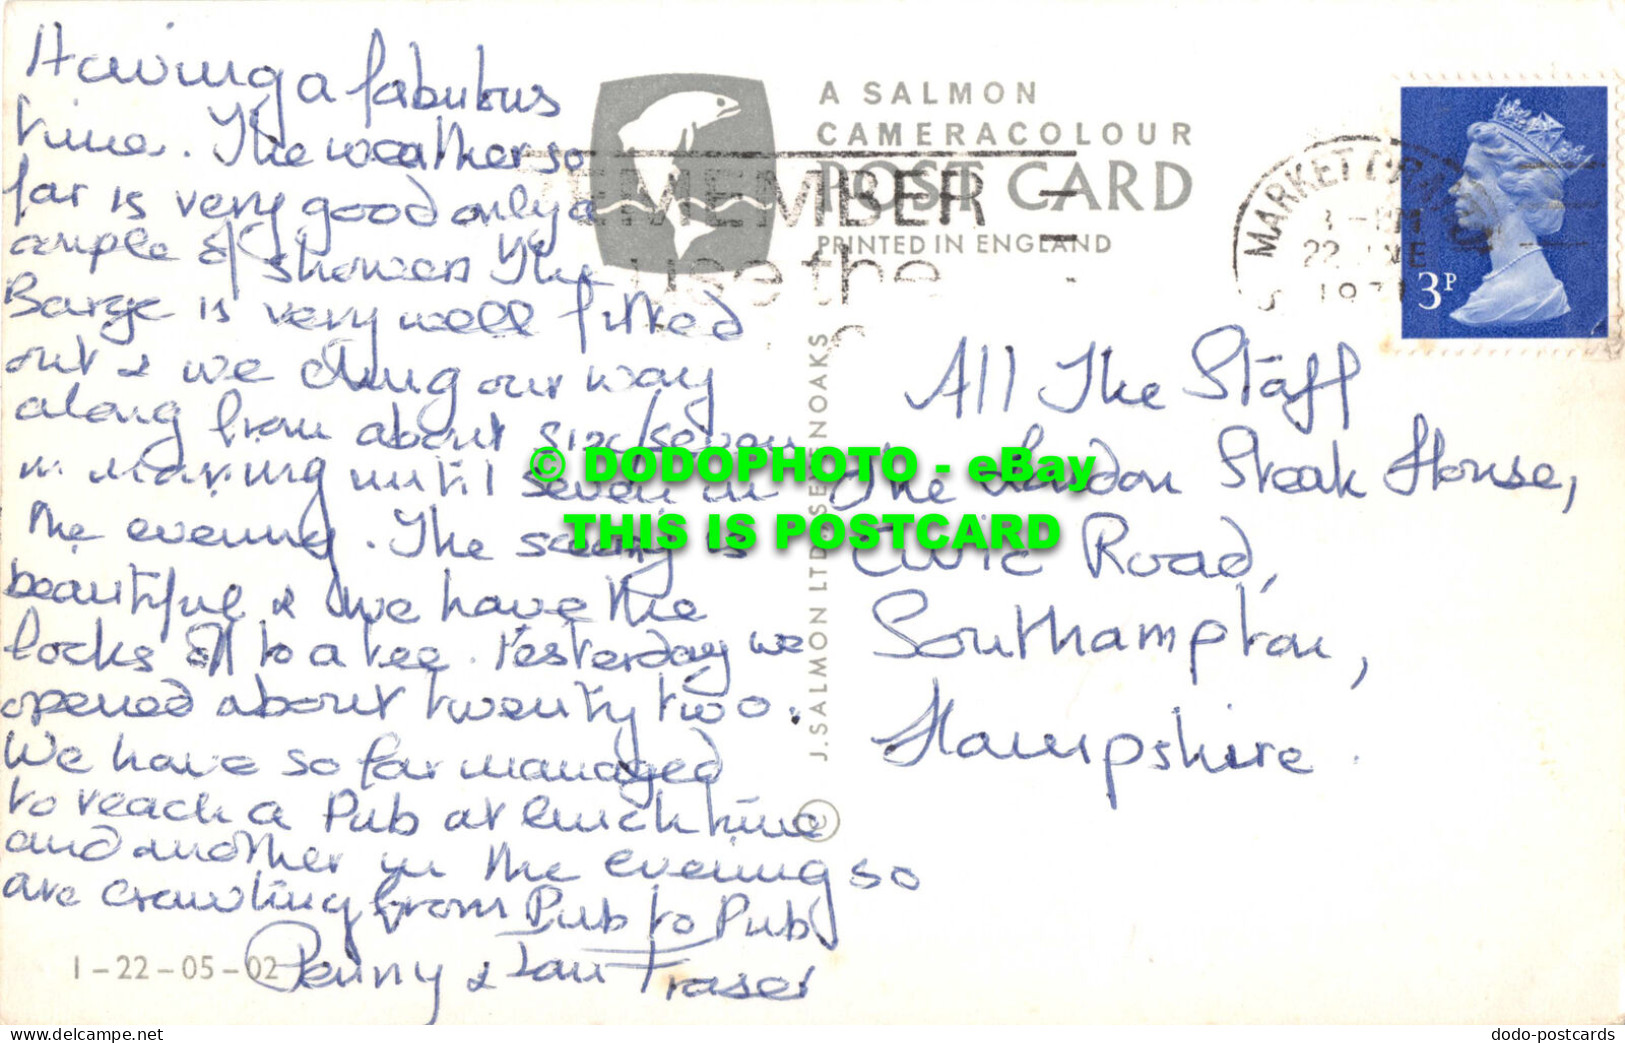 Having a fabulous
time. The weather so
far is very good only a
couple of showers The
Barge is very well fitted
out & we chug our way
along from about six/seven
in morning until seven in
the evening. The scenery is
beautiful & we have the
locks off to a tee. Yesterday we
opened about twenty two.
We have so far managed
to reach a Pub at lunchtime
and another in the evening so
are crawling from Pub to Pub
Penny & Ian Fraser
1-22-05-02
A SALMON
CAMERACOLOUR
POST CARD
PRINTED IN ENGLAND
REMEMBER
use the
MARKET DRAYTON
22 JUNE
3P
J. SALMON LTD SEVENOAKS
©
All The Staff
The London Steak House,
Civic Road,
Southampton,
Hampshire.
© DODOPHOTO - eBay
THIS IS POSTCARD
the-millt.com
dodo-postcards